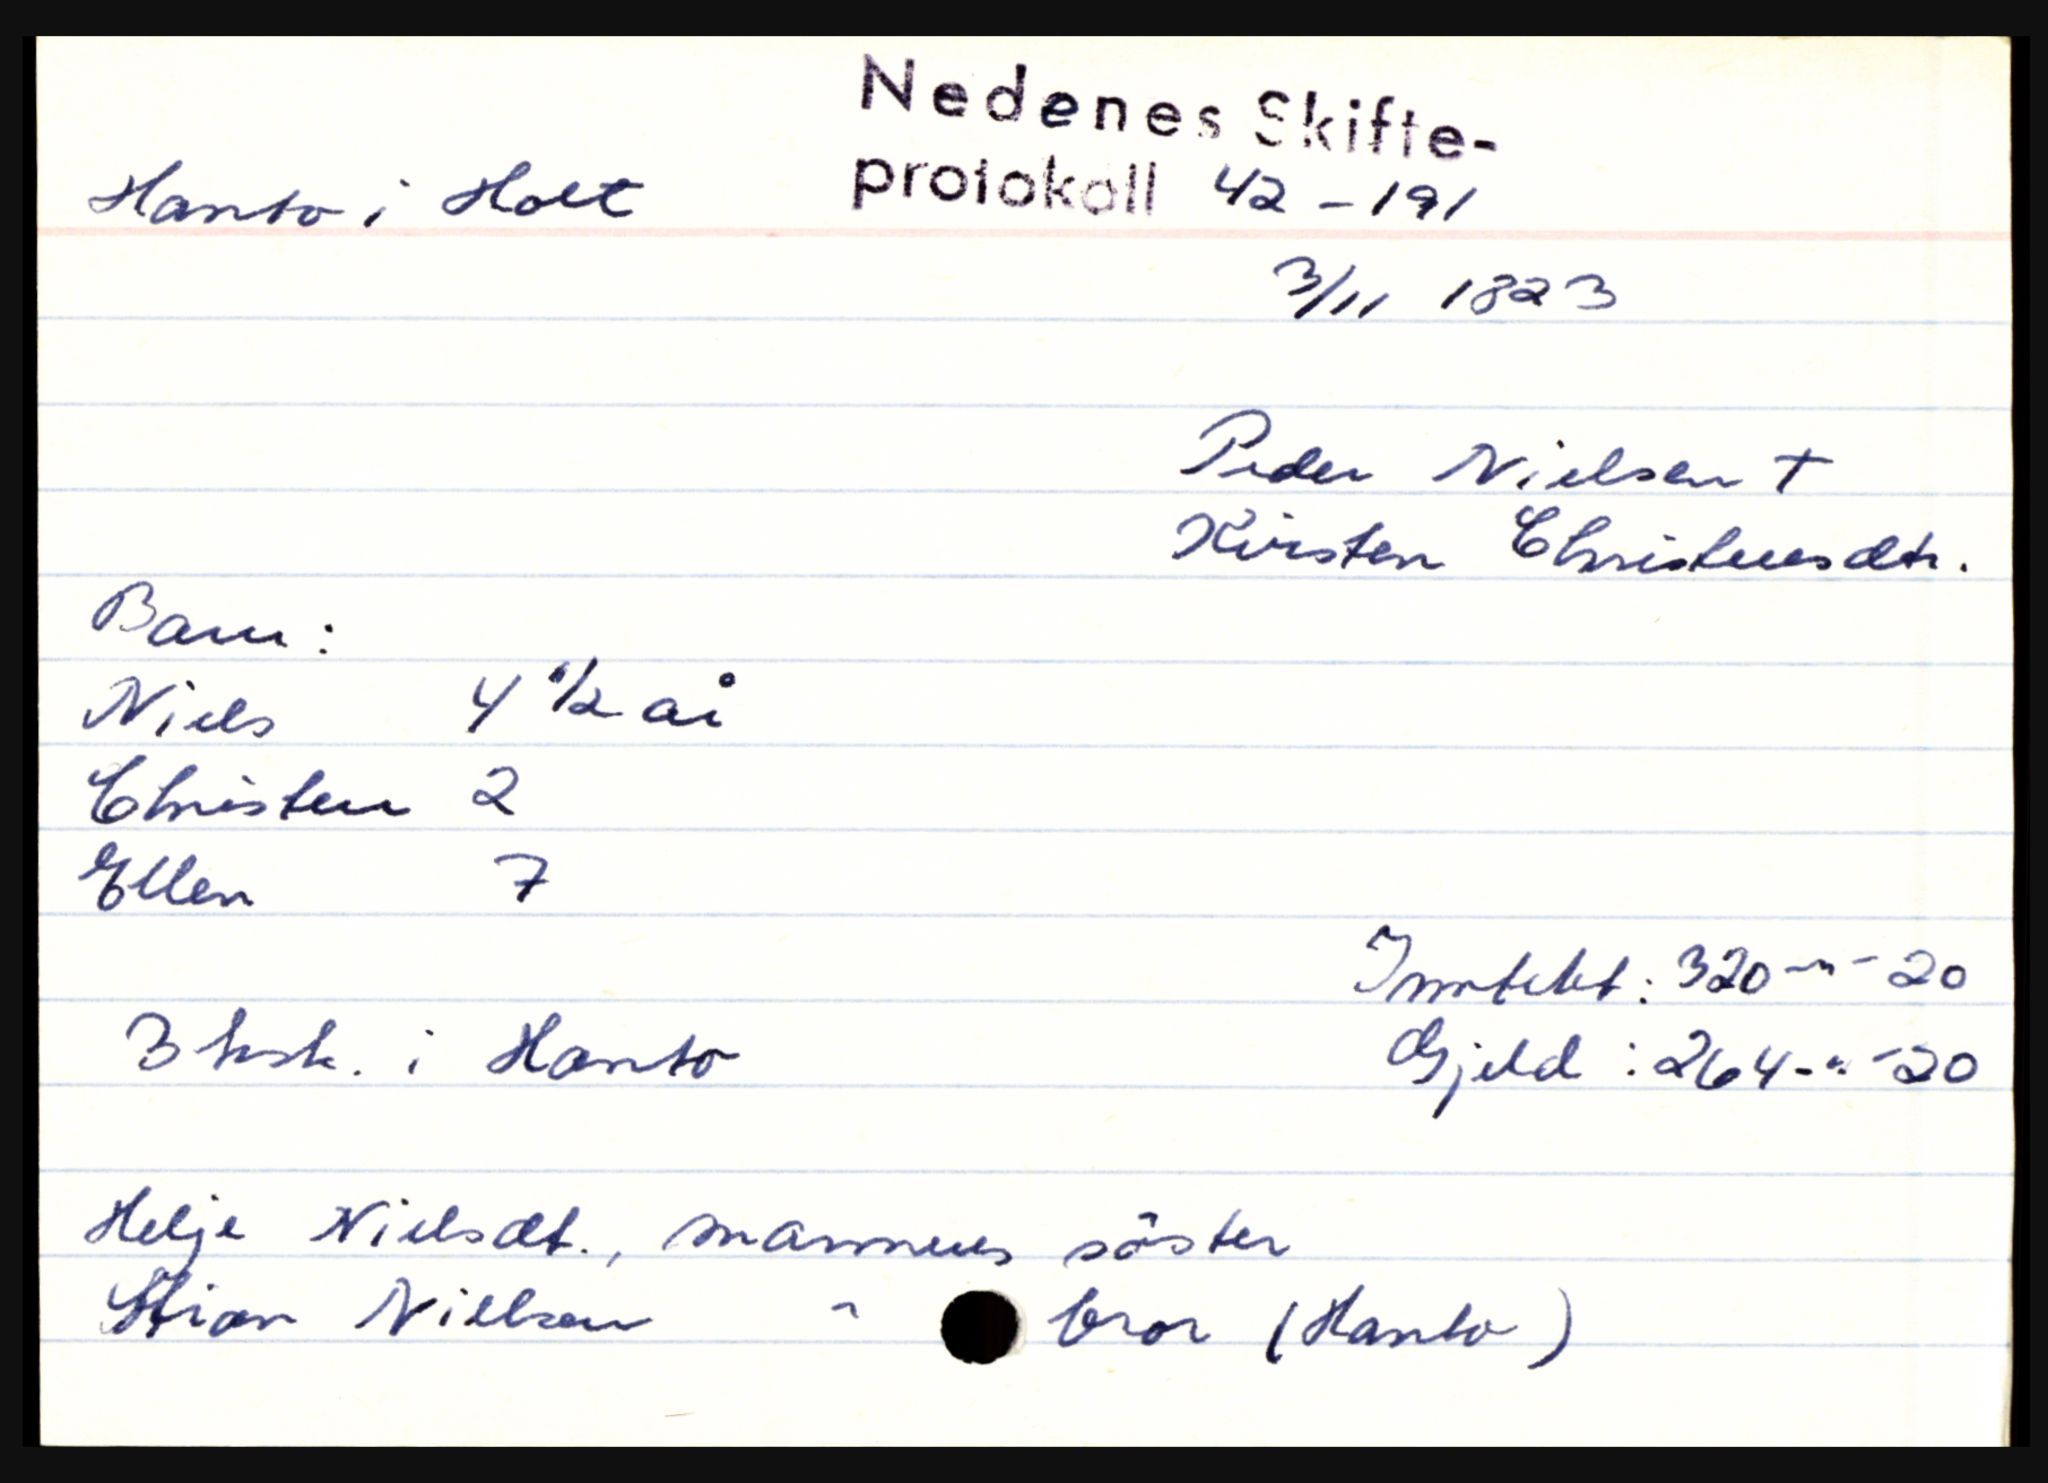 Nedenes Skifte-
Hanto i Holt protokoll 42 - 191
3/11 1823
Peder Nielsen †
Kirsten Christensdtr.
Barn:
Niels 4 1/2 år
Christen 2
Ellen 7
Inntekt: 320-"-20
3 hsk. i Hanto
Gjeld : 264-"-20
Helje Nielsdt., mannens söster
Stian Nielsen " bror (Hanto)